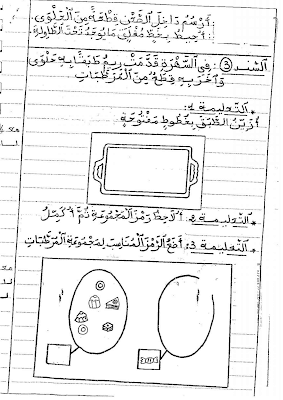 : أَرْسُمُ دَاخِلَ الصَّحْنِ قِطْعَةً مِنَ الْحَلْوَى.
: أُحِيطُ بِخَطٍّ مُغْلَقٍ مَا يُوجَدُ تَحْتَ الطَّاوِلَةِ
السّند 3 : فِي السَّهْرَةِ قَدَّمَتْ رِيمُ طَبَقًا بِهِ حَلْوَى
وَ آخَرَ بِهِ قِطَعٌ مِنَ الْمُرَطَّبَاتِ
* التّعليمة 1:
أُزَيِّنُ الطَّبَقَ بِخُطُوطٍ مَفْتُوحَةٍ
* التّعليمة 2: أُلَاحِظُ رَمْزَ الْمَجْمُوعَةِ ثُمَّ أُكَمِّلُ
* التّعليمة 3: أَضَعُ الرَّمْزَ الْمُنَاسِبَ لِمَجْمُوعَةِ الْمُرَطَّبَاتِ